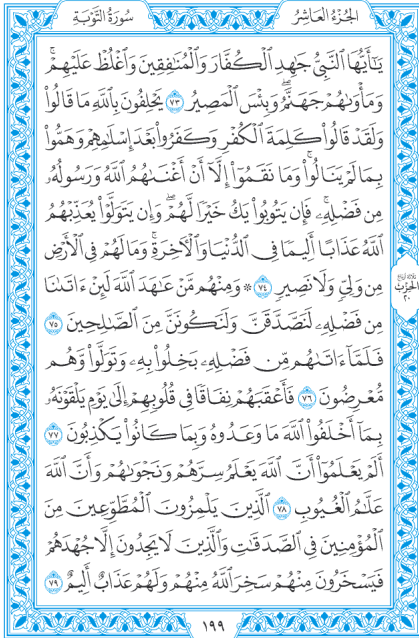 الجُزْءُ العَاشِرُ
سُورَةُ التَّوْبَةِ
يَٰٓأَيُّهَا ٱلنَّبِيُّ جَٰهِدِ ٱلۡكُفَّارَ وَٱلۡمُنَٰفِقِينَ وَٱغۡلُظۡ عَلَيۡهِمۡۚ
وَمَأۡوَىٰهُمۡ جَهَنَّمُۖ وَبِئۡسَ ٱلۡمَصِيرُ ٧٣ يَحۡلِفُونَ بِٱللَّهِ مَا قَالُواْ
وَلَقَدۡ قَالُواْ كَلِمَةَ ٱلۡكُفۡرِ وَكَفَرُواْ بَعۡدَ إِسۡلَٰمِهِمۡ وَهَمُّواْ
بِمَا لَمۡ يَنَالُواْۚ وَمَا نَقَمُوٓاْ إِلَّآ أَنۡ أَغۡنَىٰهُمُ ٱللَّهُ وَرَسُولُهُۥ
مِن فَضۡلِهِۦۚ فَإِن يَتُوبُواْ يَكُ خَيۡرٗا لَّهُمۡۖ وَإِن يَتَوَلَّوۡاْ يُعَذِّبۡهُمُ
ٱللَّهُ عَذَابًا أَلِيمٗا فِي ٱلدُّنۡيَا وَٱلۡأٓخِرَةِۚ وَمَا لَهُمۡ فِي ٱلۡأَرۡضِ
مِن وَلِيّٖ وَلَا نَصِيرٖ ٧٤ ۞ وَمِنۡهُم مَّنۡ عَٰهَدَ ٱللَّهَ لَئِنۡ ءَاتَىٰنَا
مِن فَضۡلِهِۦ لَنَصَّدَّقَنَّ وَلَنَكُونَنَّ مِنَ ٱلصَّٰلِحِينَ ٧٥
فَلَمَّآ ءَاتَىٰهُم مِّن فَضۡلِهِۦ بَخِلُواْ بِهِۦ وَتَوَلَّواْ وَّهُم
مُّعۡرِضُونَ ٧٦ فَأَعۡقَبَهُمۡ نِفَاقٗا فِي قُلُوبِهِمۡ إِلَىٰ يَوۡمِ يَلۡقَوۡنَهُۥ
بِمَآ أَخۡلَفُواْ ٱللَّهَ مَا وَعَدُوهُ وَبِمَا كَانُواْ يَكۡذِبُونَ ٧٧
أَلَمۡ يَعۡلَمُوٓاْ أَنَّ ٱللَّهَ يَعۡلَمُ سِرَّهُمۡ وَنَجۡوَىٰهُمۡ وَأَنَّ ٱللَّهَ
عَلَّٰمُ ٱلۡغُيُوبِ ٧٨ ٱلَّذِينَ يَلۡمِزُونَ ٱلۡمُطَّوِّعِينَ مِنَ
ٱلۡمُؤۡمِنِينَ فِي ٱلصَّدَقَٰتِ وَٱلَّذِينَ لَا يَجِدُونَ إِلَّا جُهۡدَهُمۡ
فَيَسۡخَرُونَ مِنۡهُمۡ سَخِرَ ٱللَّهُ مِنۡهُمۡ وَلَهُمۡ عَذَابٌ أَلِيمٌ ٧٩
ثلاثة أرباع
الحزب
٢٠
١٩٩